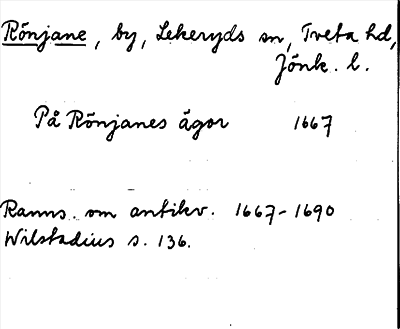 Rönjane, by, Lekeryds sn, Tveta hd,
Jönk. l.
På Rönjanes ägor 1667
Ranns. om antikv. 1667-1690
Wilstadius s. 136.